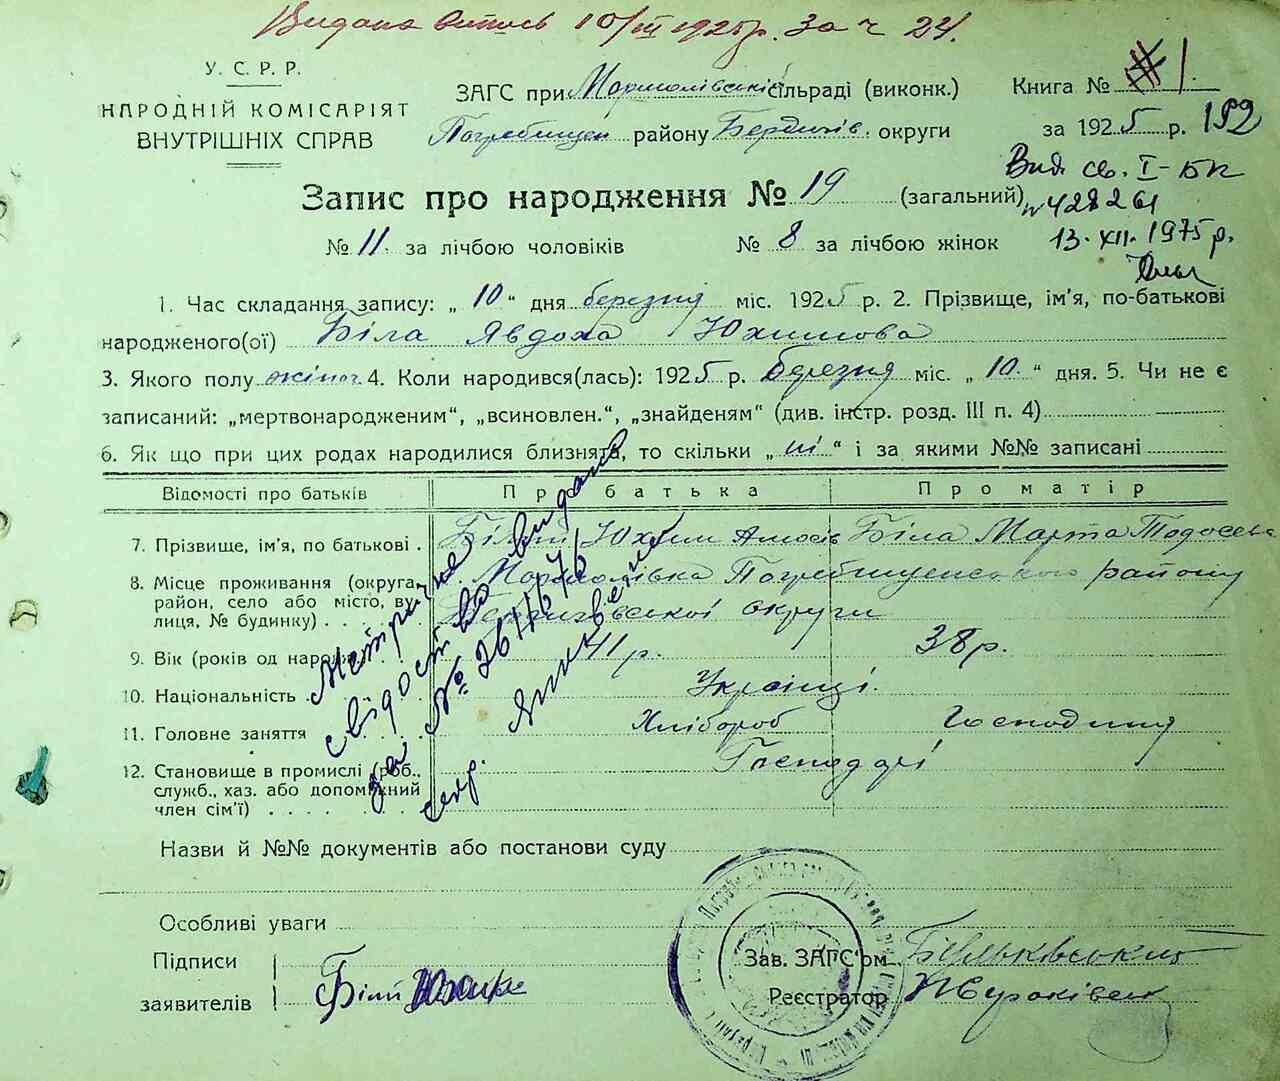 Видана Витись 10/III 1925р. за ч 24.
У. С. Р. Р.
НАРОДНІЙ КОМІСАРІЯТ
ВНУТРІШНІХ СПРАВ
ЗАГС при Мармолівській сільраді (виконк.)
Погребищен району Бердичів. округи
Книга № 1
за 1925 р. 192
Вид. св. I-БК
№ 428261
13.XII.1975 р.
Запис про народження № 19 (загальний)
№ 11. за лічбою чоловіків № 8 за лічбою жінок
1. Час складання запису: „ 10 “ дня березня міс. 1925 р. 2. Прізвище, ім'я, по-батькові
народженого(ої) Біла Явдоха Юхимова
3. Якого полу жіноч. 4. Коли народився(лась): 1925 р. березня міс. „ 10. “ дня. 5. Чи не є
записаний: „мертвонародженим“, „всиновлен.“, „знайденям“ (див. інстр. розд. III п. 4)
6. Як що при цих родах народилися близнята, то скільки „ ні “ і за якими №№ записані
Відомості про батьків Про батька Про матір
7. Прізвище, ім'я, по батькові . Білий Юхим Амосів Біла Марта Тодосева
8. Місце проживання (округа, район, село або місто, вулиця, № будинку) . . . Мармолівка Погребищенського району
Бердичівської округи
9. Вік (років од народж. 41 р. 38 р.
10. Національність . Українці.
11. Головне заняття Хлібороб Господиня
12. Становище в промислі (роб.,
служб., хаз. або допоміжний
член сім'ї) . . . . . Господарі
Метричне видано
свідоцтво
за №
секр.
Назви й №№ документів або постанови суду
Особливі уваги
Підписи
заявителів Білий Юхим
Зав. ЗАГС'ом
Реєстратор